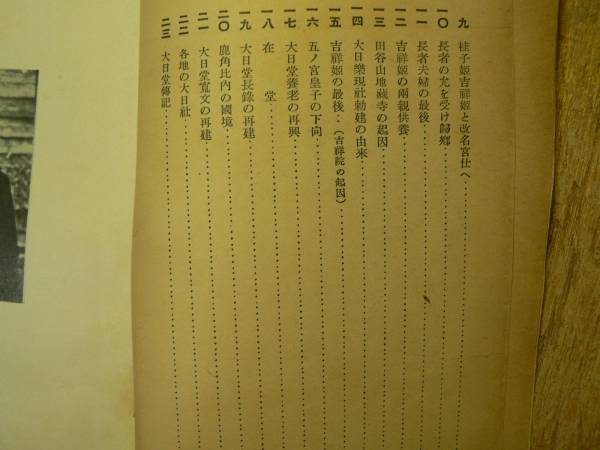 九 桂子姫吉祥姫と改名宮仕へ
一〇 長者の光を受け歸鄕
一一 長者夫婦の最後
一二 吉祥姫の兩親供養
一三 田谷山地藏寺の起因
一四 大日樂現社勅建の由來
一五 吉祥姫の最後（吉祥院の起因）
一六 五ノ宮皇子の下向
一七 大日堂養老の再興
一八 在堂
一九 大日堂長錄の再建
二〇 鹿角比內の國境
二一 大日堂寬文の再建
二二 各地の大日社
二三 大日堂傳記